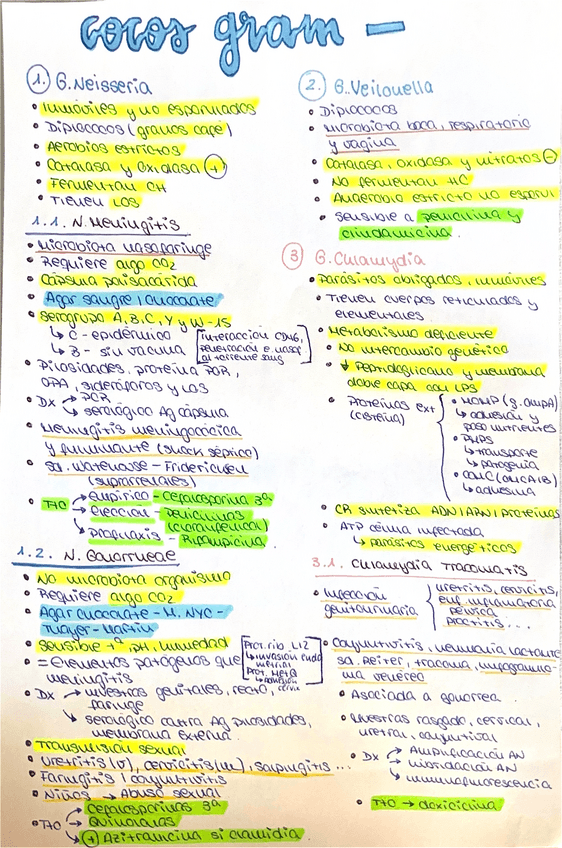 cocos gram -
1. G. Neisseria
• Inmóviles y no esporulados
• Diplococos (granos café)
• Aerobios estrictos
• Catalasa y Oxidasa +
• Fermentan CH
• Tienen LOS
1.1. N. Meningitis
• Microbiota nasofaringe
• Requiere algo CO2
• Cápsula polisacárida
• Agar sangre / chocolate
• Serogrupo A, B, C, Y y W-15
↳ C - epidémico
↳ B - sin vacuna
[Interacción CD46, penetración e
al torrente sang]
• Pilosidades, proteína POR,
OPA, sideróforos y LOS
• Dx → PCR
↘ serológico Ag cápsula
• Meningitis meningocócica
y fulminante (shock séptico)
• Sd. Waterhouse - Friderichsen
(suprarrenales)
• TTO → Empírico - Cefalosporina 3ª
→ Elección - Penicilinas
(cloranfenicol)
↘ Profilaxis - Rifampicina
1.2. N. Gonorrheae
• No microbiota organismo
• Requiere algo CO2
• Agar chocolate - M. NYC -
Thayer - Martin
• Sensible Tª, pH, humedad
• = Elementos patógenos que
meningitis
[Prot. rib L12
↳ invasión endo
metrial
Prot. Met Q
↳ adhesión
cérvix]
• Dx → muestras genitales, recto,
faringe
↘ serológico contra Ag pilosidades,
membrana externa.
• Transmisión sexual
• Uretritis (v), cervicitis (m), salpingitis ...
• Faringitis / conjuntivitis
• Niños → Abuso sexual
• TTO → Cefalosporinas 3ª
→ Quinolonas
↘ + Azitromicina si clamidia
2. G. Veillonella
• Diplococos
• Microbiota boca, respiratoria
y vagina
• Catalasa, oxidasa y nitratos -
• No fermentan HC
• Anaerobio estricto no esporul
• Sensible a penicilina y
clindamicina.
3 G. Chlamydia
• Parásitos obligados, inmóviles
• Tienen cuerpos reticulados y
elementales.
• Metabolismo deficiente
• No intercambio genético
• ↓ Peptidoglicano y membrana
doble capa con LPS
• Proteínas ext
(cisteína)
• MOMP (g. ompA)
↳ adhesión y
paso nutrientes
• PMPS
↳ transporte
↳ patogenia
• OMC (OMC A/B)
↳ adhesina
• CR sintetiza ADN/ARN/proteínas
• ATP célula infectada
↳ parásitos energéticos
3.1. Chlamydia Tracomatis
• Infección
genitourinaria
uretritis, cervicitis,
enf. inflamatoria
pélvica
proctitis ...
• Conjuntivitis, neumonía lactante
sd. Reiter, tracoma, linfogranulo-
ma venéreo
• Asociada a gonorrea.
• Muestras rasgado, cervical,
uretral, conjuntival
• Dx → Amplificación AN
→ hibridación AN
↘ inmunofluorescencia
• TTO → doxiciclina